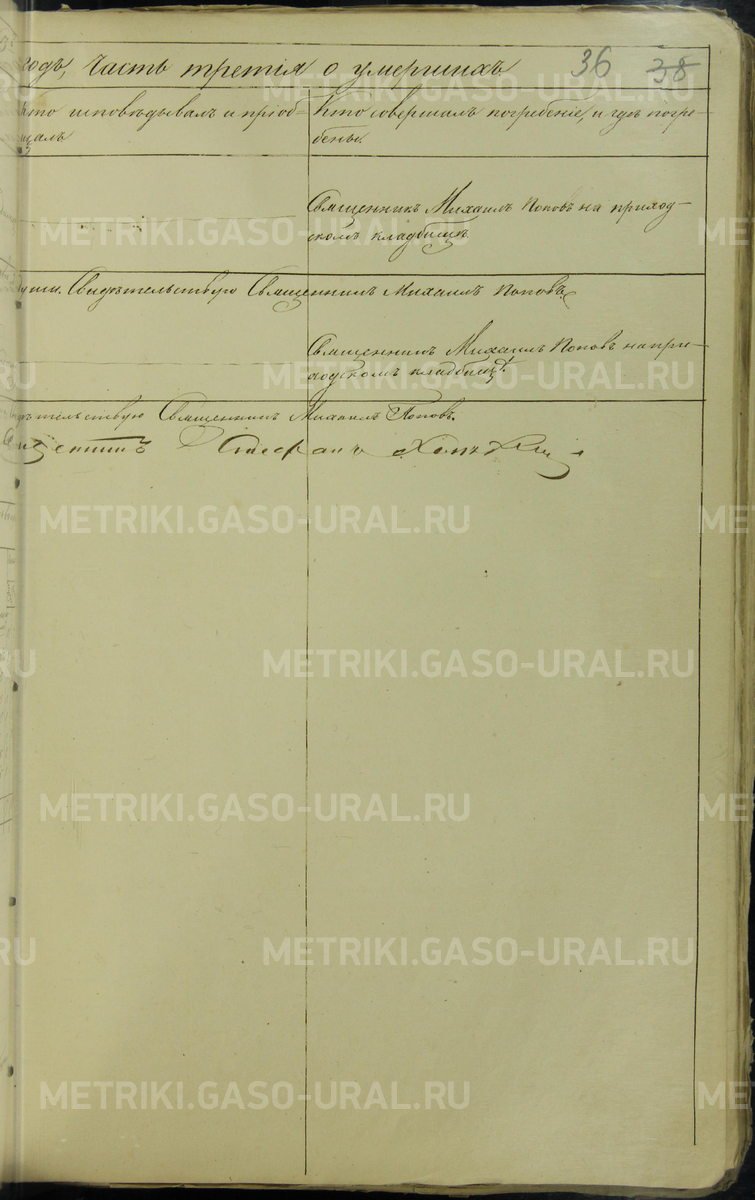 годъ, Часть третія о умершихъ. 36 38
Кто исповѣдывалъ и пріоб-
щалъ
Кто совершалъ погребеніе, и гдѣ погре-
бены.
Священникъ Михаилъ Поповъ на приход-
скомъ кладбищѣ.
Свидѣтельствую Священникъ Михаилъ Поповъ.
Священникъ Михаилъ Поповъ на при-
ходскомъ кладбищѣ.
дѣтельствую Священникъ Михаилъ Поповъ.
Священникъ Стефанъ
METRIKI.GASO-URAL.RU